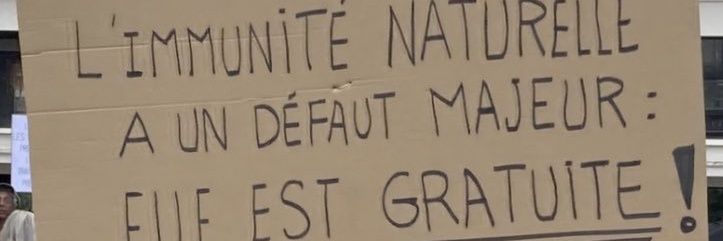 L'IMMUNITÉ NATURELLE
A UN DÉFAUT MAJEUR :
ELLE EST GRATUITE !